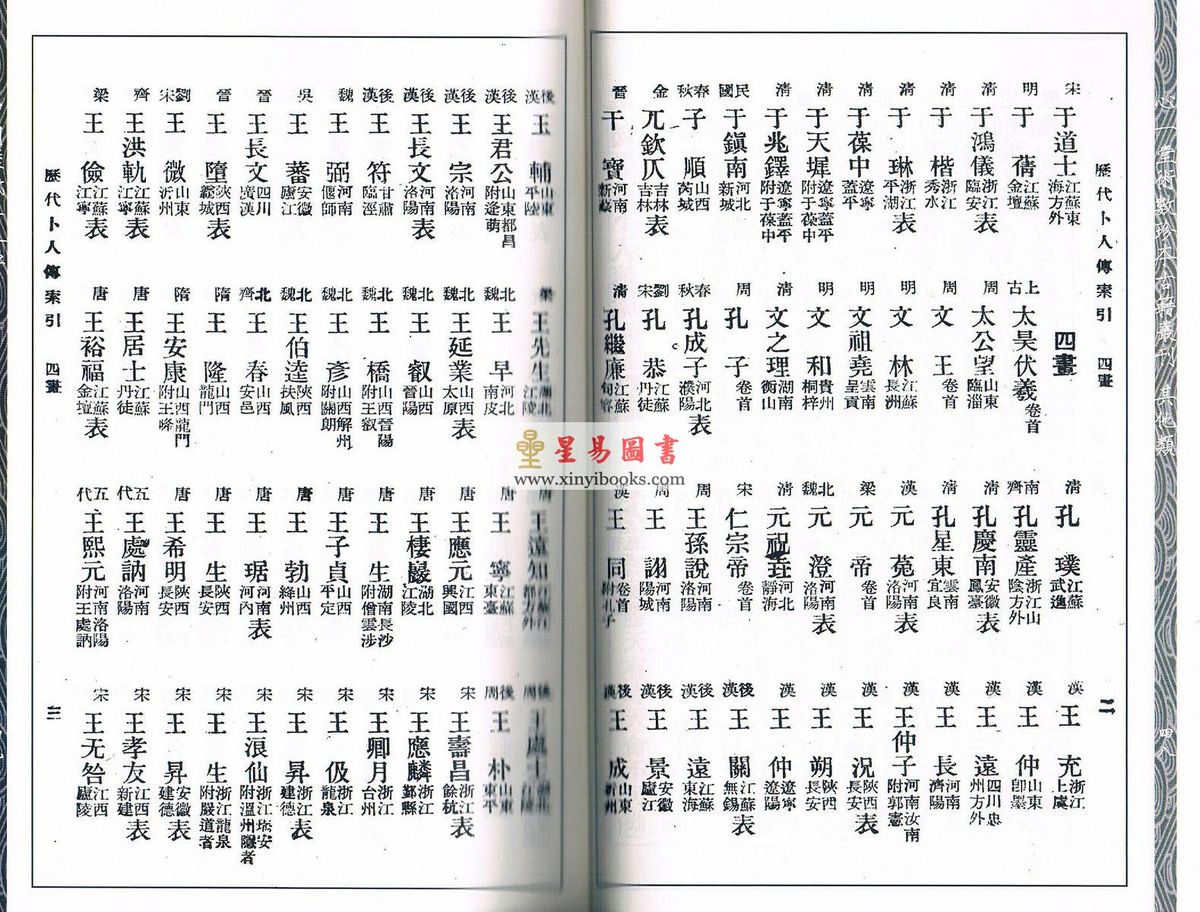 歷代卜人傳索引 四畫
二
宋 于道士 江蘇東海方外
明 于 蒨 江蘇金壇
清 于鴻儀 浙江臨安 表
清 于 楷 浙江秀水
清 于 琳 浙江平湖 表
清 于葆中 遼寧蓋平
清 于天墀 遼寧蓋平附于葆中
清 于兆鐸 遼寧蓋平附于葆中
民國 于鎭南 河北新城
春秋 子 順 山西芮城
金 兀欽仄 吉林吉林 表
晉 干 寶 河南新蔡
四畫
上古 太昊伏羲 卷首
周 太公望 山東臨淄
周 文 王 卷首
明 文 林 江蘇長洲
明 文祖堯 雲南呈貢
明 文 和 貴州桐梓
清 文之理 湖南衡山
周 孔 子 卷首
春秋 孔成子 河北濮陽 表
劉宋 孔 恭 江蘇丹徒
清 孔繼廉 江蘇句容
清 孔 璞 江蘇武進
南齊 孔靈產 浙江山陰方外
清 孔慶南 安徽鳳臺 表
清 孔星東 雲南宜良
漢 元 菟 河南洛陽 表
梁 元 帝 卷首
北魏 元 澄 河南洛陽 表
清 元祝垚 河北靜海
宋 仁宗帝 卷首
周 王孫說 河南洛陽
周 王 詡 河南陽城
漢 王 同 卷首附孔子
漢 王 充 浙江上虞
漢 王 仲 山東卽墨
漢 王 遠 四川忠州方外
漢 王 長 河南濟陽
漢 王仲子 河南汝南附郭憲
漢 王 況 陝西長安 表
漢 王 朔 陝西長安
漢 王 仲 遼寧遼陽
後漢 王 關 江蘇無錫 表
後漢 王 遠 江蘇東海
後漢 王 景 安徽廬江
後漢 王 成 山東新州
後漢 王 輔 山東平陸
後漢 王君公 山東都昌附逄萌
後漢 王 宗 河南洛陽
後漢 王長文 河南洛陽 表
後漢 王 符 甘肅臨涇
魏 王 弼 河南偃師
吳 王 蕃 安徽廬江
晉 王長文 四川廣漢
晉 王 墮 陝西霸城 表
劉宋 王 微 山東沂州
齊 王洪軌 江蘇江寧 表
梁 王 儉 江蘇江寧 表
梁 王先生 湖北江陵
北魏 王 早 河北南皮
北魏 王延業 山西太原 表
北魏 王 叡 山西晉陽
北魏 王 橋 山西晉陽附王叡
北魏 王 彥 山西解州附關朗
北魏 王伯逵 陝西扶風
北齊 王 春 山西安邑
隋 王 隆 山西龍門
隋 王安康 山西龍門附王峰
唐 王居士 江蘇丹徒
唐 王裕福 江蘇金壇 表
唐 王遠知 江蘇江都方外
唐 王 寧 江蘇東臺
唐 王應元 江西興國
唐 王棲巖 湖北江陵
唐 王 生 湖南長沙附僧雲涉
唐 王子貞 山西平定
唐 王 勃 山西絳州
唐 王 琚 河南河內 表
唐 王 生 陝西長安
唐 王希明 陝西長安
五代 王處訥 河南洛陽
五代 王熙元 河南洛陽附王處訥
後周 王處士 湖北江陵
後周 王 朴 山東東平
宋 王壽昌 浙江餘杭 表
宋 王應麟 浙江鄞縣
宋 王卿月 浙江台州
宋 王 伋 浙江龍泉
宋 王 昇 浙江建德 表
宋 王浪仙 浙江瑞安附溫州隱者
宋 王 生 浙江龍泉附嚴道者
宋 王 昇 安徽建德
宋 王孝友 江西新建 表
宋 王无咎 江西廬陵
歷代卜人傳索引 四畫
三
星易圖書
www.xinyibooks.com